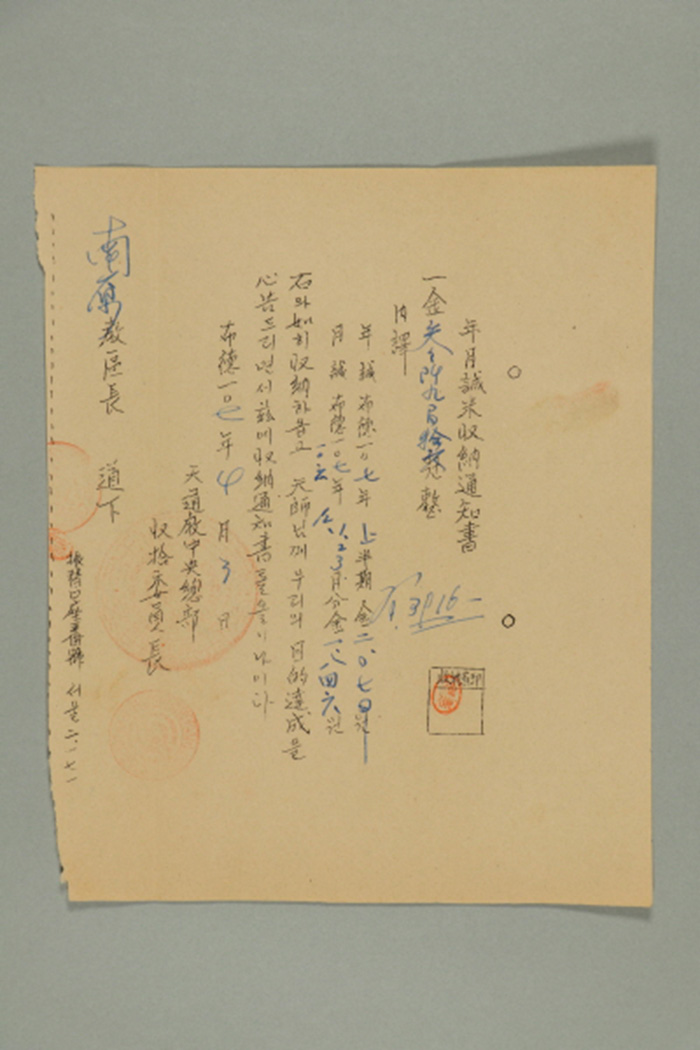 年月誠米収納通知書
一金 仟九百拾 整
₩3,916-
内譯
年誠 布德一0七年 上半期 金二.0七0원
月誠 布德一0七年 一0六 1.2.3月分 金一.八四六원
右와如히 収納하옵고 天師님께 우리의 目的達成을
心告드리면서 玆에 収納通知書를 올리나이다
布德一0七年 4月 3日
天道敎中央總部
収拾委員長
南原敎區長 道下
振替口座番號 서울 二.一七一